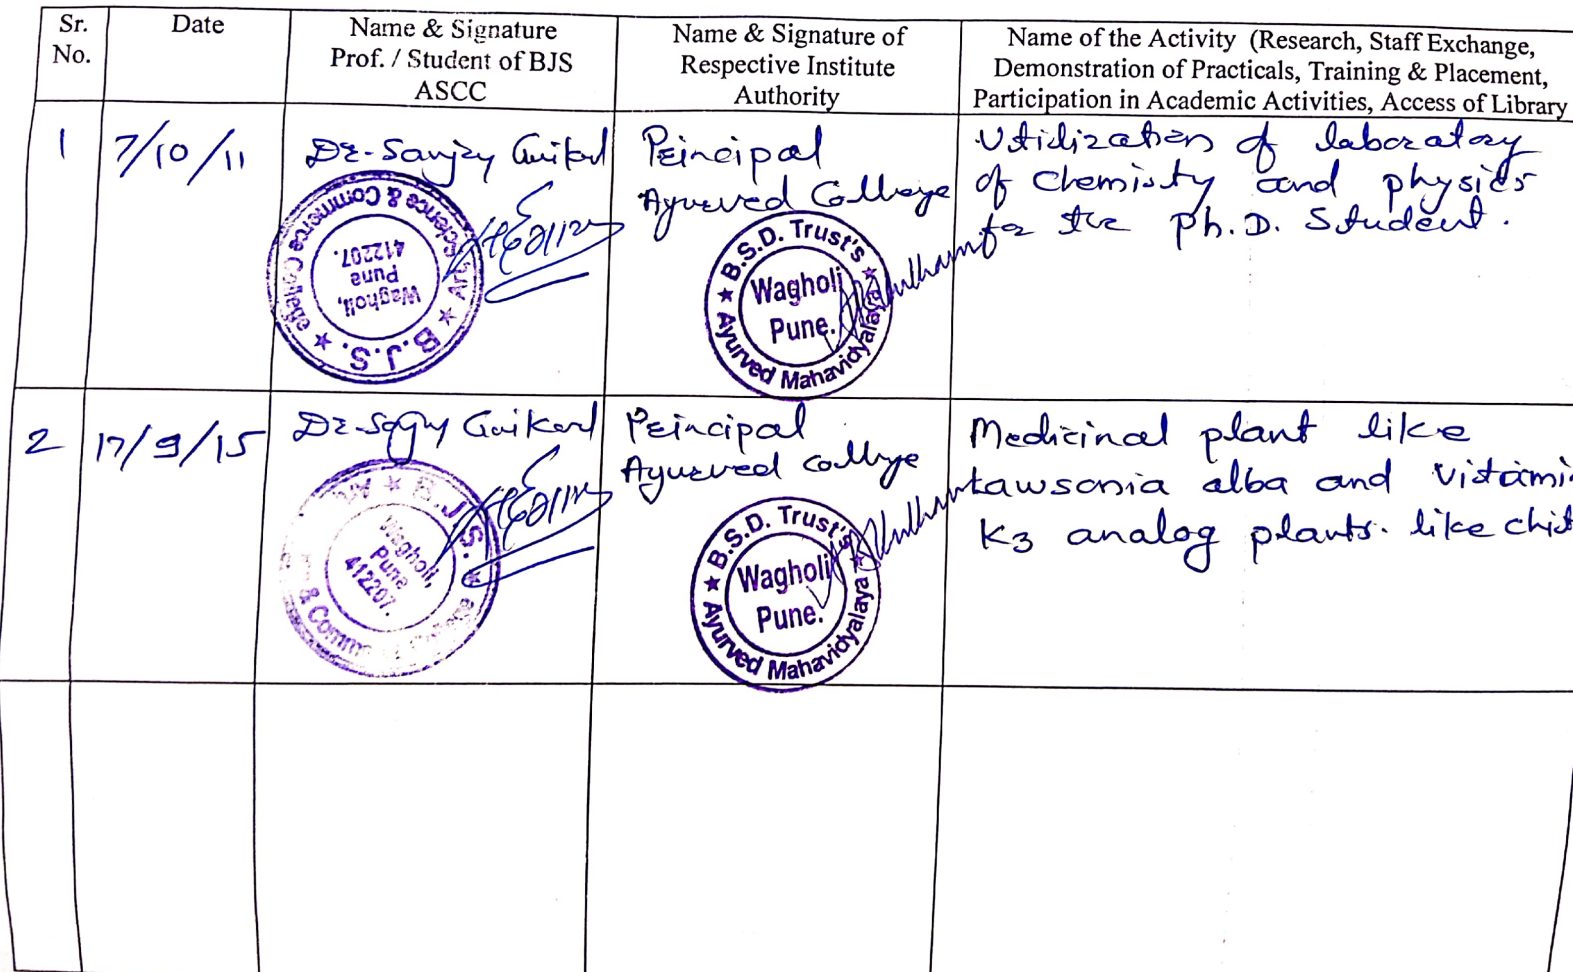 Sr. No.
Date
Name & Signature
Prof. / Student of BJS
ASCC
Name & Signature of
Respective Institute
Authority
Name of the Activity (Research, Staff Exchange,
Demonstration of Practicals, Training & Placement,
Participation in Academic Activities, Access of Library
1
7/10/11
Dr. Sanjay Gaikwad
B.J.S. ★ Arts, Science & Commerce College ★
Wagholi,
Pune
412207.
Principal
Ayurved College
★ B.S.D. Trust's ★ Ayurved Mahavidyalaya
Wagholi
Pune.
Utilization of laboratory
of Chemisty and physics
for the Ph.D. Student.
2
17/9/15
Dr. Gaikwad
B.J.S. ★ & Comm
Wagholi,
Pune
412207.
Principal
Ayurved College
★ B.S.D. Trust's ★ Ayurved Mahavidyalaya
Wagholi
Pune.
Medicinal plant like
Lawsonia alba and Vistami
K3 analog plants. like chit